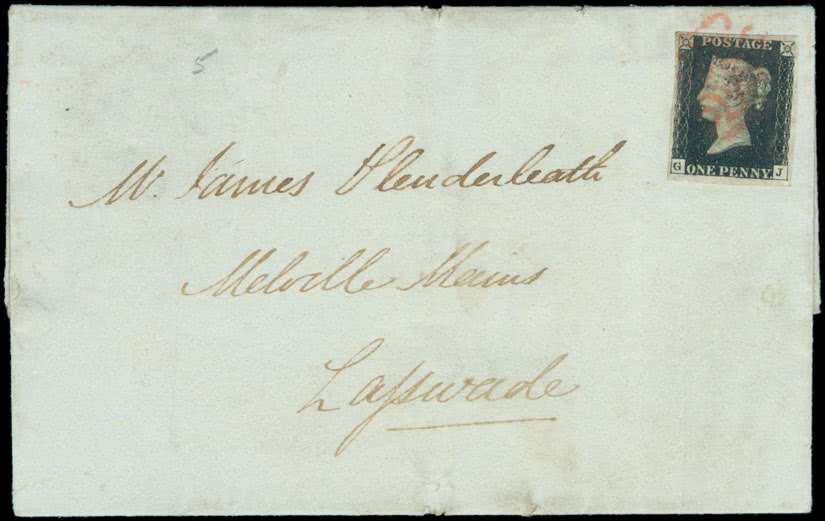 5
POSTAGE
G J
ONE PENNY
Mr. James Blenderleath
Melville Mains
Lasswade